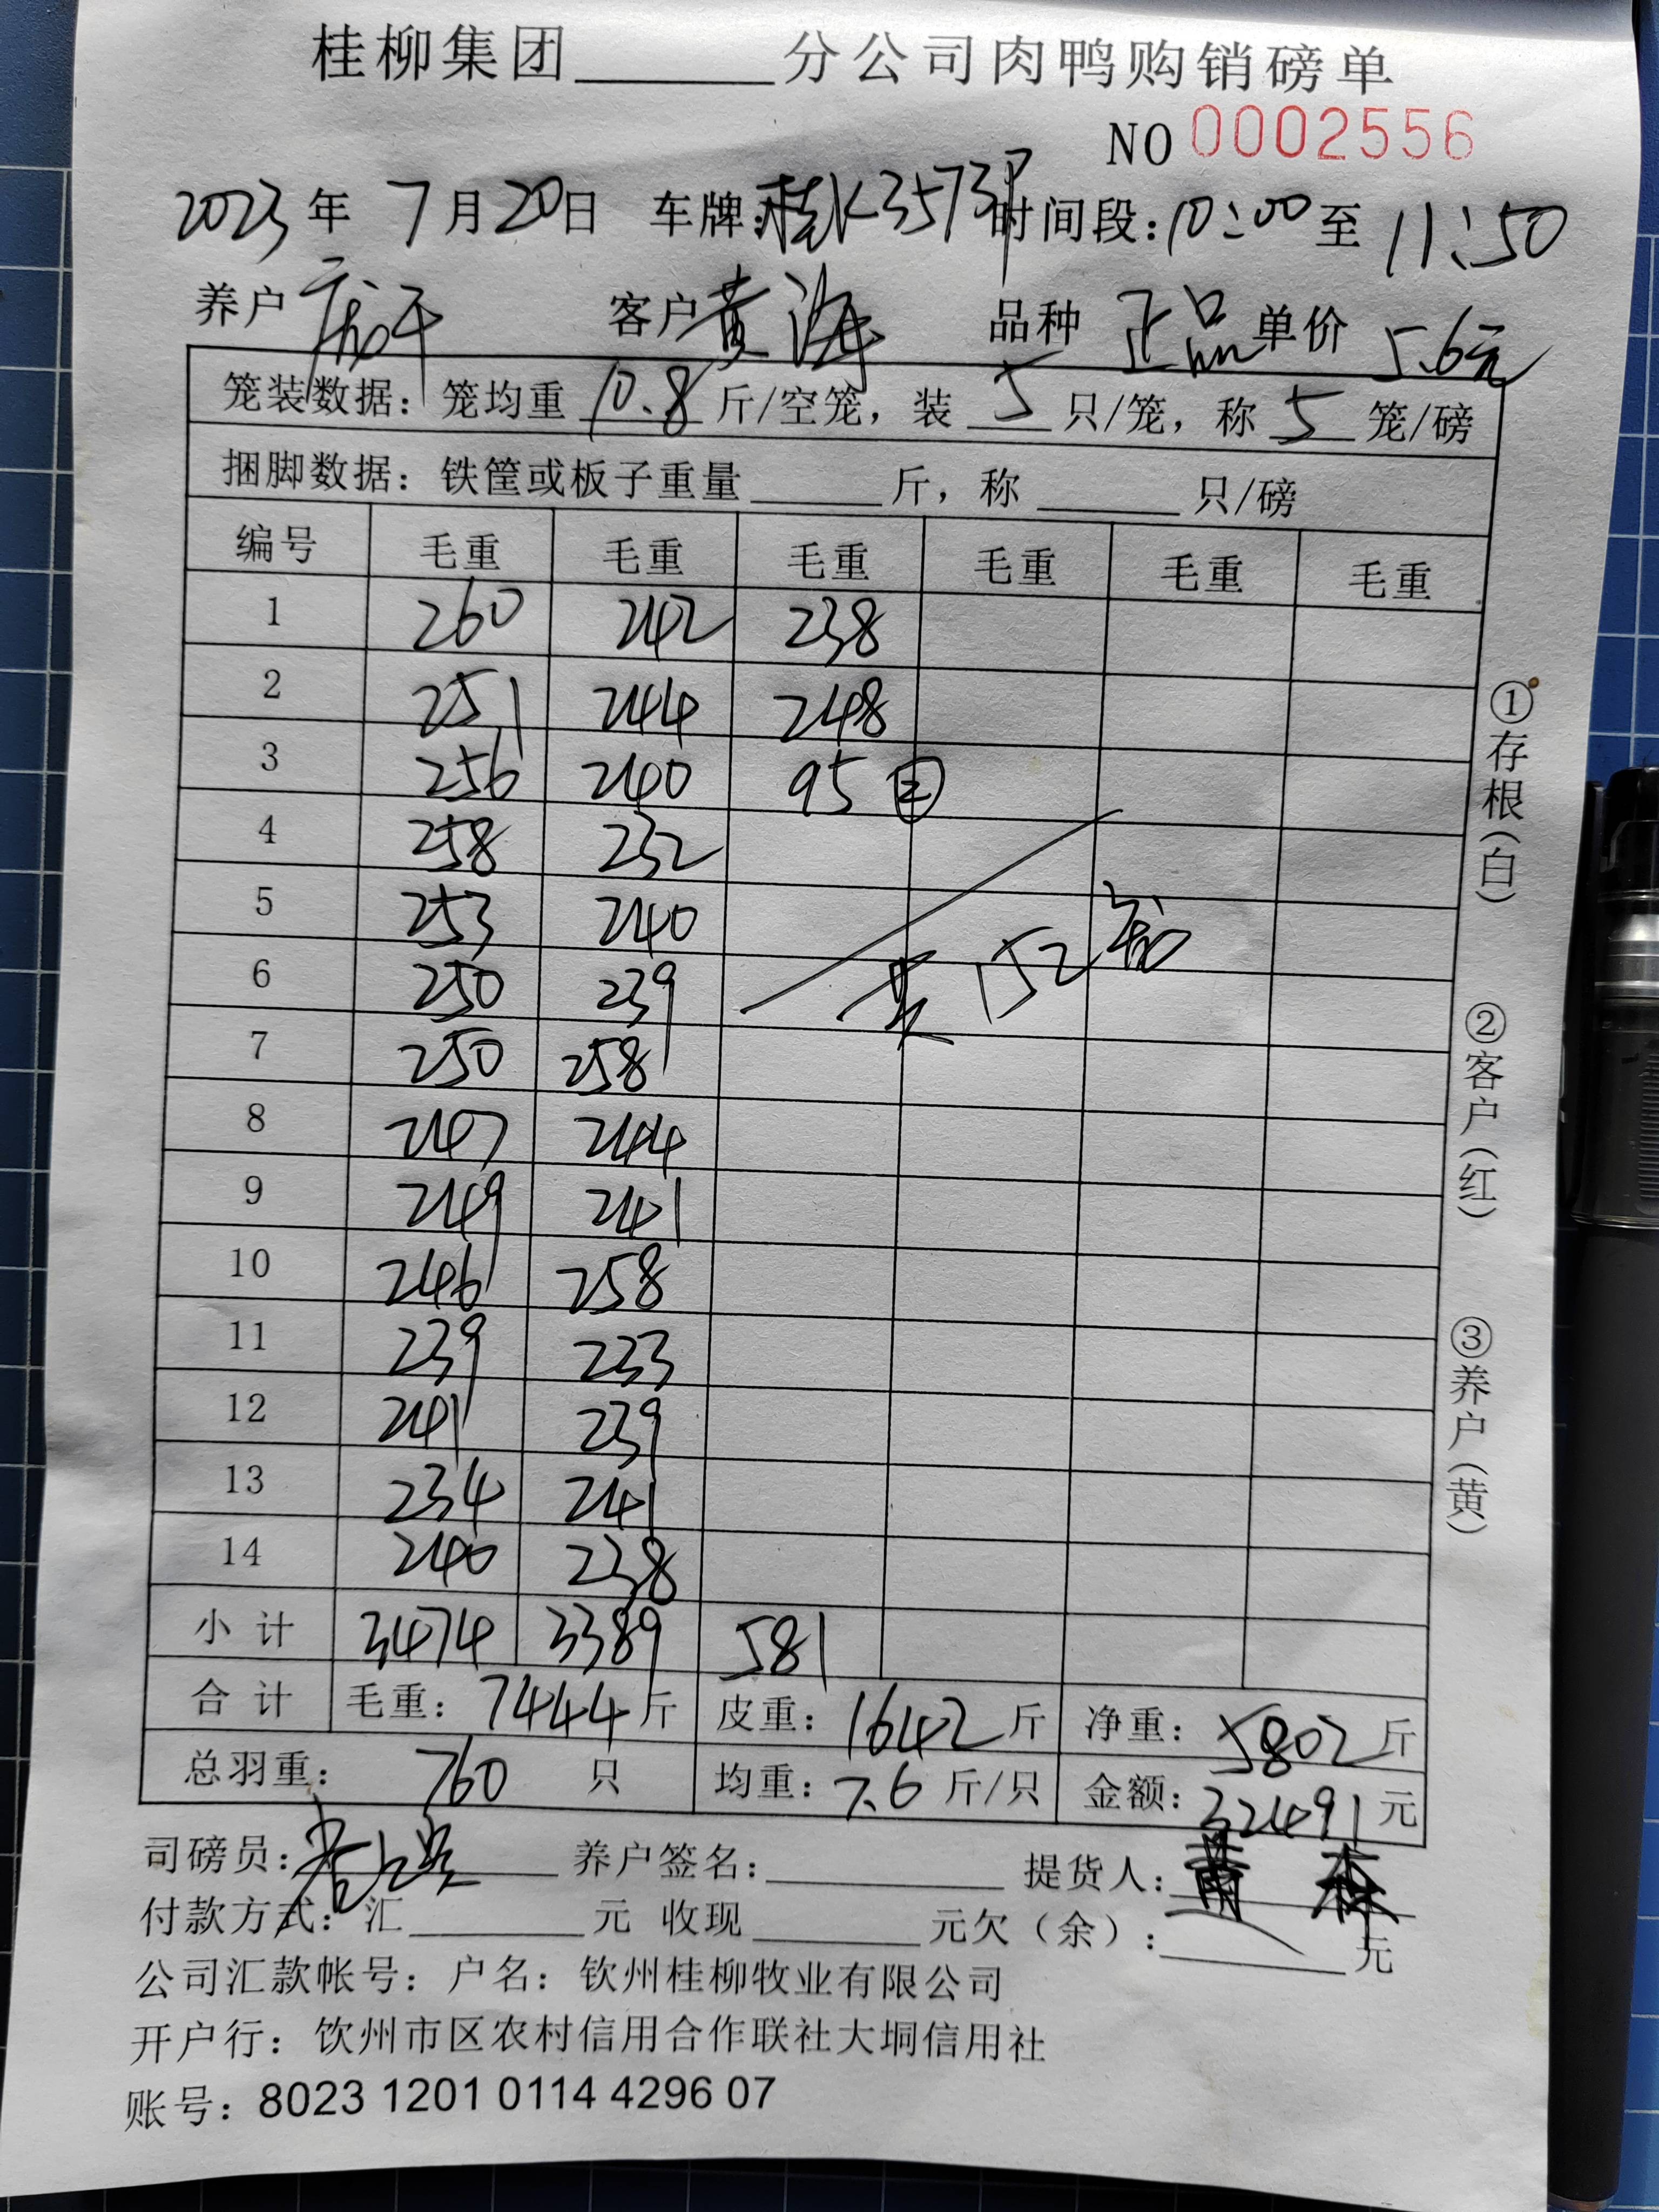 桂柳集团______分公司肉鸭购销磅单
NO 0002556
2023年 7月20日 车牌:桂K3573P 时间段:10:00至11:50
养户 客户 黄海 品种 正品 单价 5.6元
笼装数据：笼均重 10.8 斤/空笼，装 5 只/笼，称 5 笼/磅
捆脚数据：铁筐或板子重量______斤，称______只/磅
编号 毛重 毛重 毛重 毛重 毛重 毛重
1 260 242 238
2 251 244 248
3 256 240 95 ㊁
4 258 232
5 253 240
6 250 239 共152笼
7 250 258
8 247 244
9 249 241
10 246 258
11 239 233
12 241 239
13 234 241
14 240 238
小计 3474 3389 581
合计 毛重：7444斤 皮重：1642斤 净重：5802斤
总羽重：760 只 均重：7.6斤/只 金额：32491元
司磅员： 养户签名：______ 提货人：
付款方式：汇______元 收现______元欠（余）：______元
公司汇款帐号：户名：钦州桂柳牧业有限公司
开户行：饮州市区农村信用合作联社大垌信用社
账号：8023 1201 0114 4296 07
①存根（白） ②客户（红） ③养户（黄）